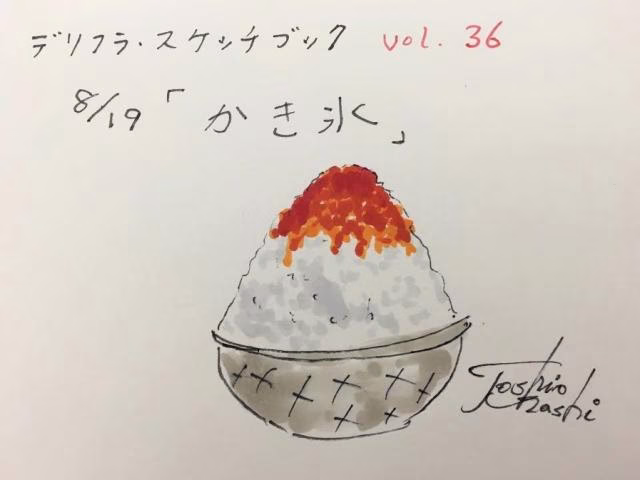 デリフラ・スケッチブック vol. 36
8/19「かき氷」
Toshio